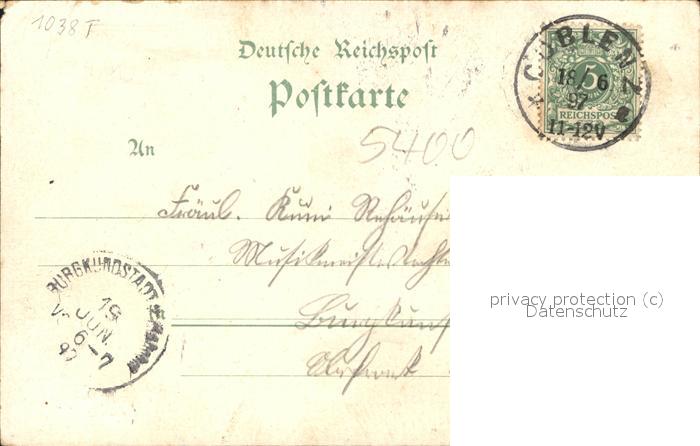 1038 T
Deutsche Reichspost
Postkarte
COBLENZ
18/6
97
11-12V
* a
5
REICHSPOST
An
5400
Fräul. Kuni
Musikmeisters
Burgkunst
Oberfrank
BURGKUNDSTADT
19
JUN.
6-7
97
privacy protection (c)
Datenschutz